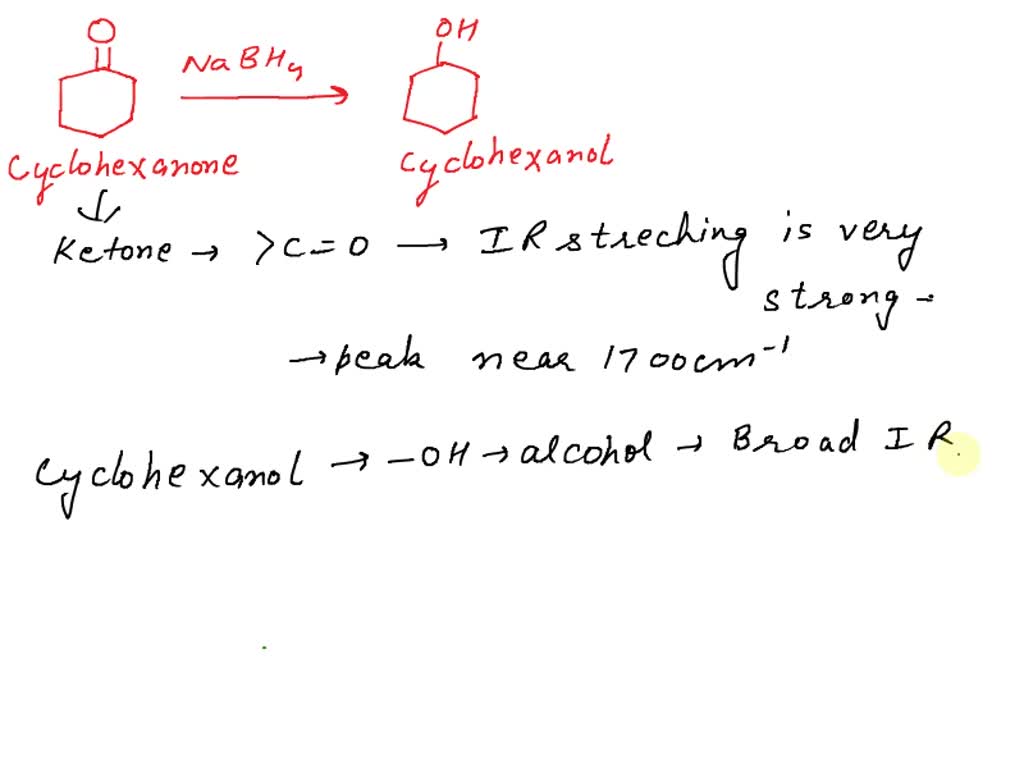 O
OH
NaBH4
Cyclohexanone
cyclohexanol
Ketone → >C=O → IR streching is very
strong -
→ peak near 1700cm⁻¹
Cyclohexanol → -OH → alcohol → Broad IR